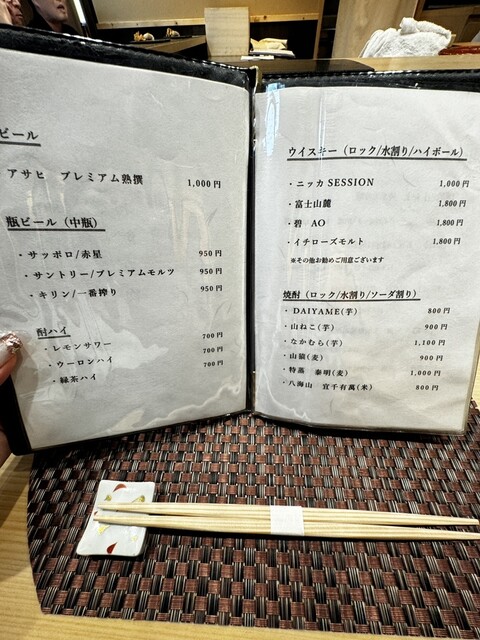 ビール
アサヒ プレミアム熟撰 1,000円
瓶ビール（中瓶）
・サッポロ/赤星 950円
・サントリー/プレミアムモルツ 950円
・キリン/一番搾り 950円
酎ハイ
・レモンサワー 700円
・ウーロンハイ 700円
・緑茶ハイ 700円
ウイスキー（ロック/水割り/ハイボール）
・ニッカ SESSION 1,000円
・富士山麓 1,800円
・碧 AO 1,800円
・イチローズモルト 1,800円
※その他お勧めご用意ございます
焼酎（ロック/水割り/ソーダ割り）
・DAIYAME(芋) 800円
・山ねこ(芋) 900円
・なかむら(芋) 1,100円
・山猿(麦) 900円
・特蒸 泰明(麦) 1,000円
・八海山 宜有千萬(米) 800円